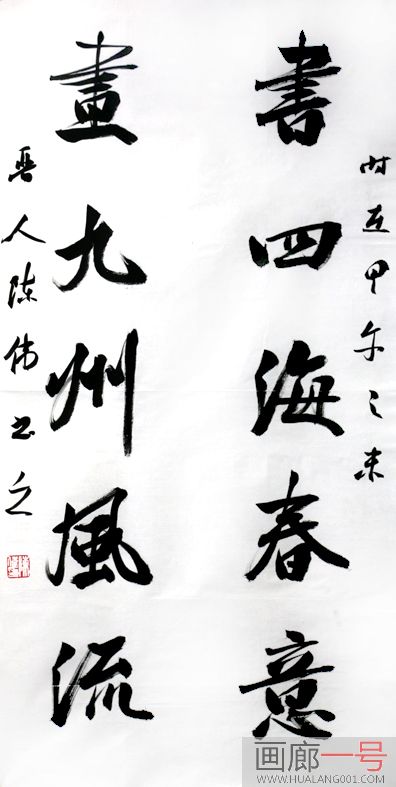 时在甲午之末
書四海春意
畫九州風流
晋人陈伟书之
画廊一号
WWW.HUALANG001.COM